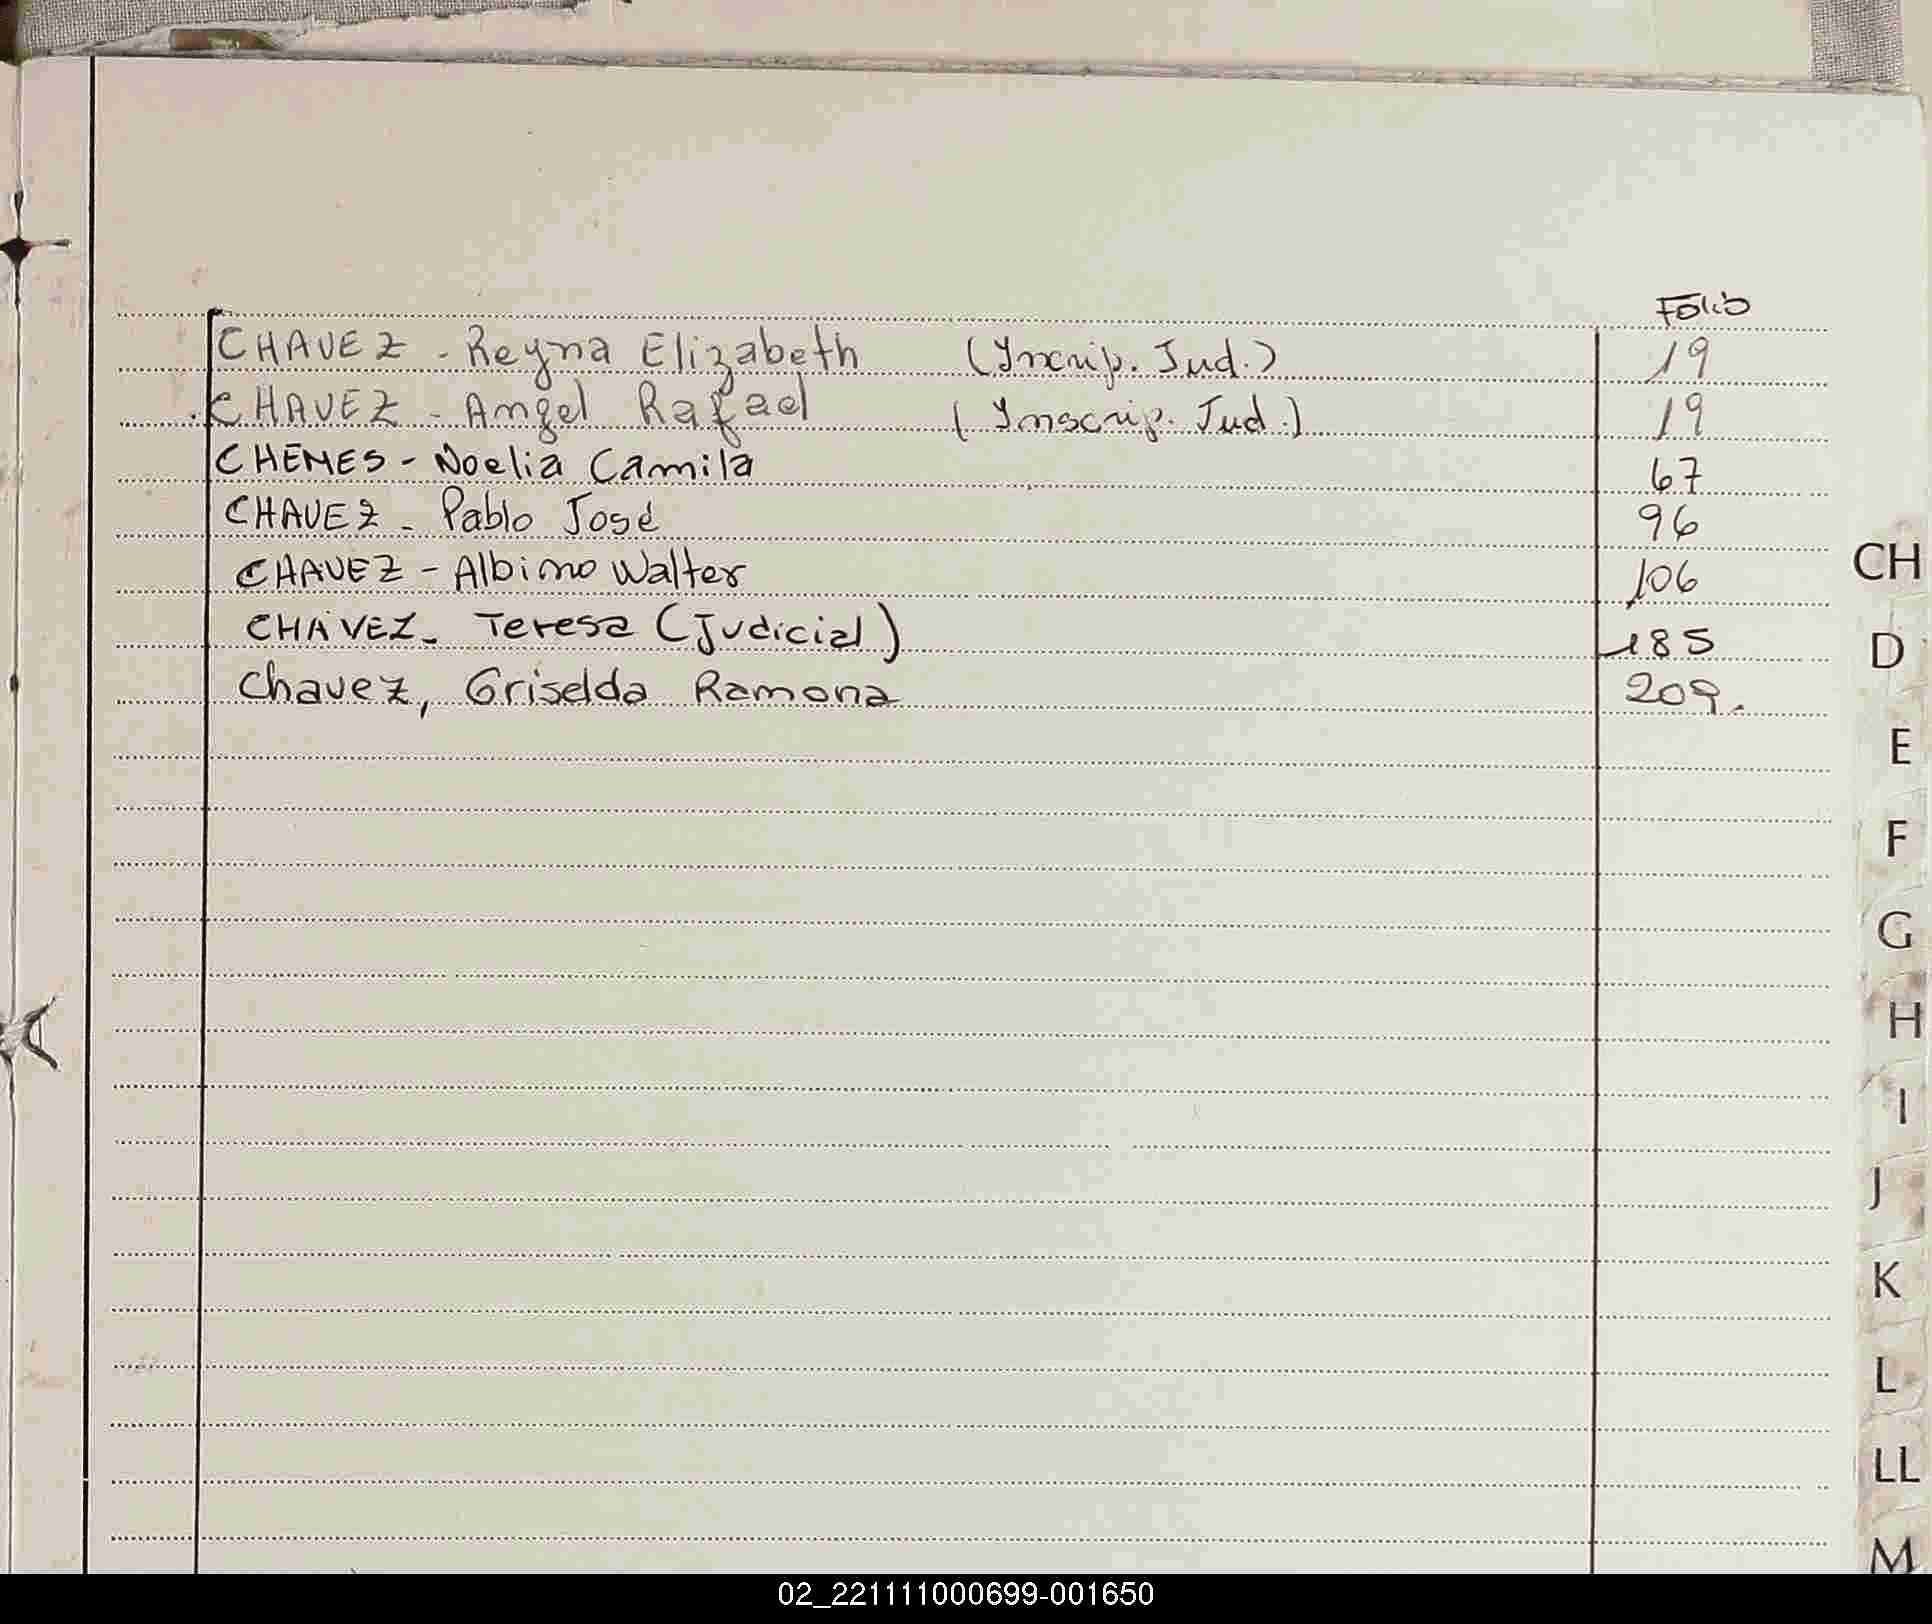 Folio
CHAVEZ - Reyna Elizabeth (Inscrip. Jud.) 19
CHAVEZ - Angel Rafael (Inscrip. Jud.) 19
CHEMES - Noelia Camila 67
CHAVEZ - Pablo José 96
CHAVEZ - Albino Walter 106
CHAVEZ - Teresa (Judicial) 185
Chavez, Griselda Ramona 209.
CH
D
E
F
G
H
I
J
K
L
LL
M
02_221111000699-001650